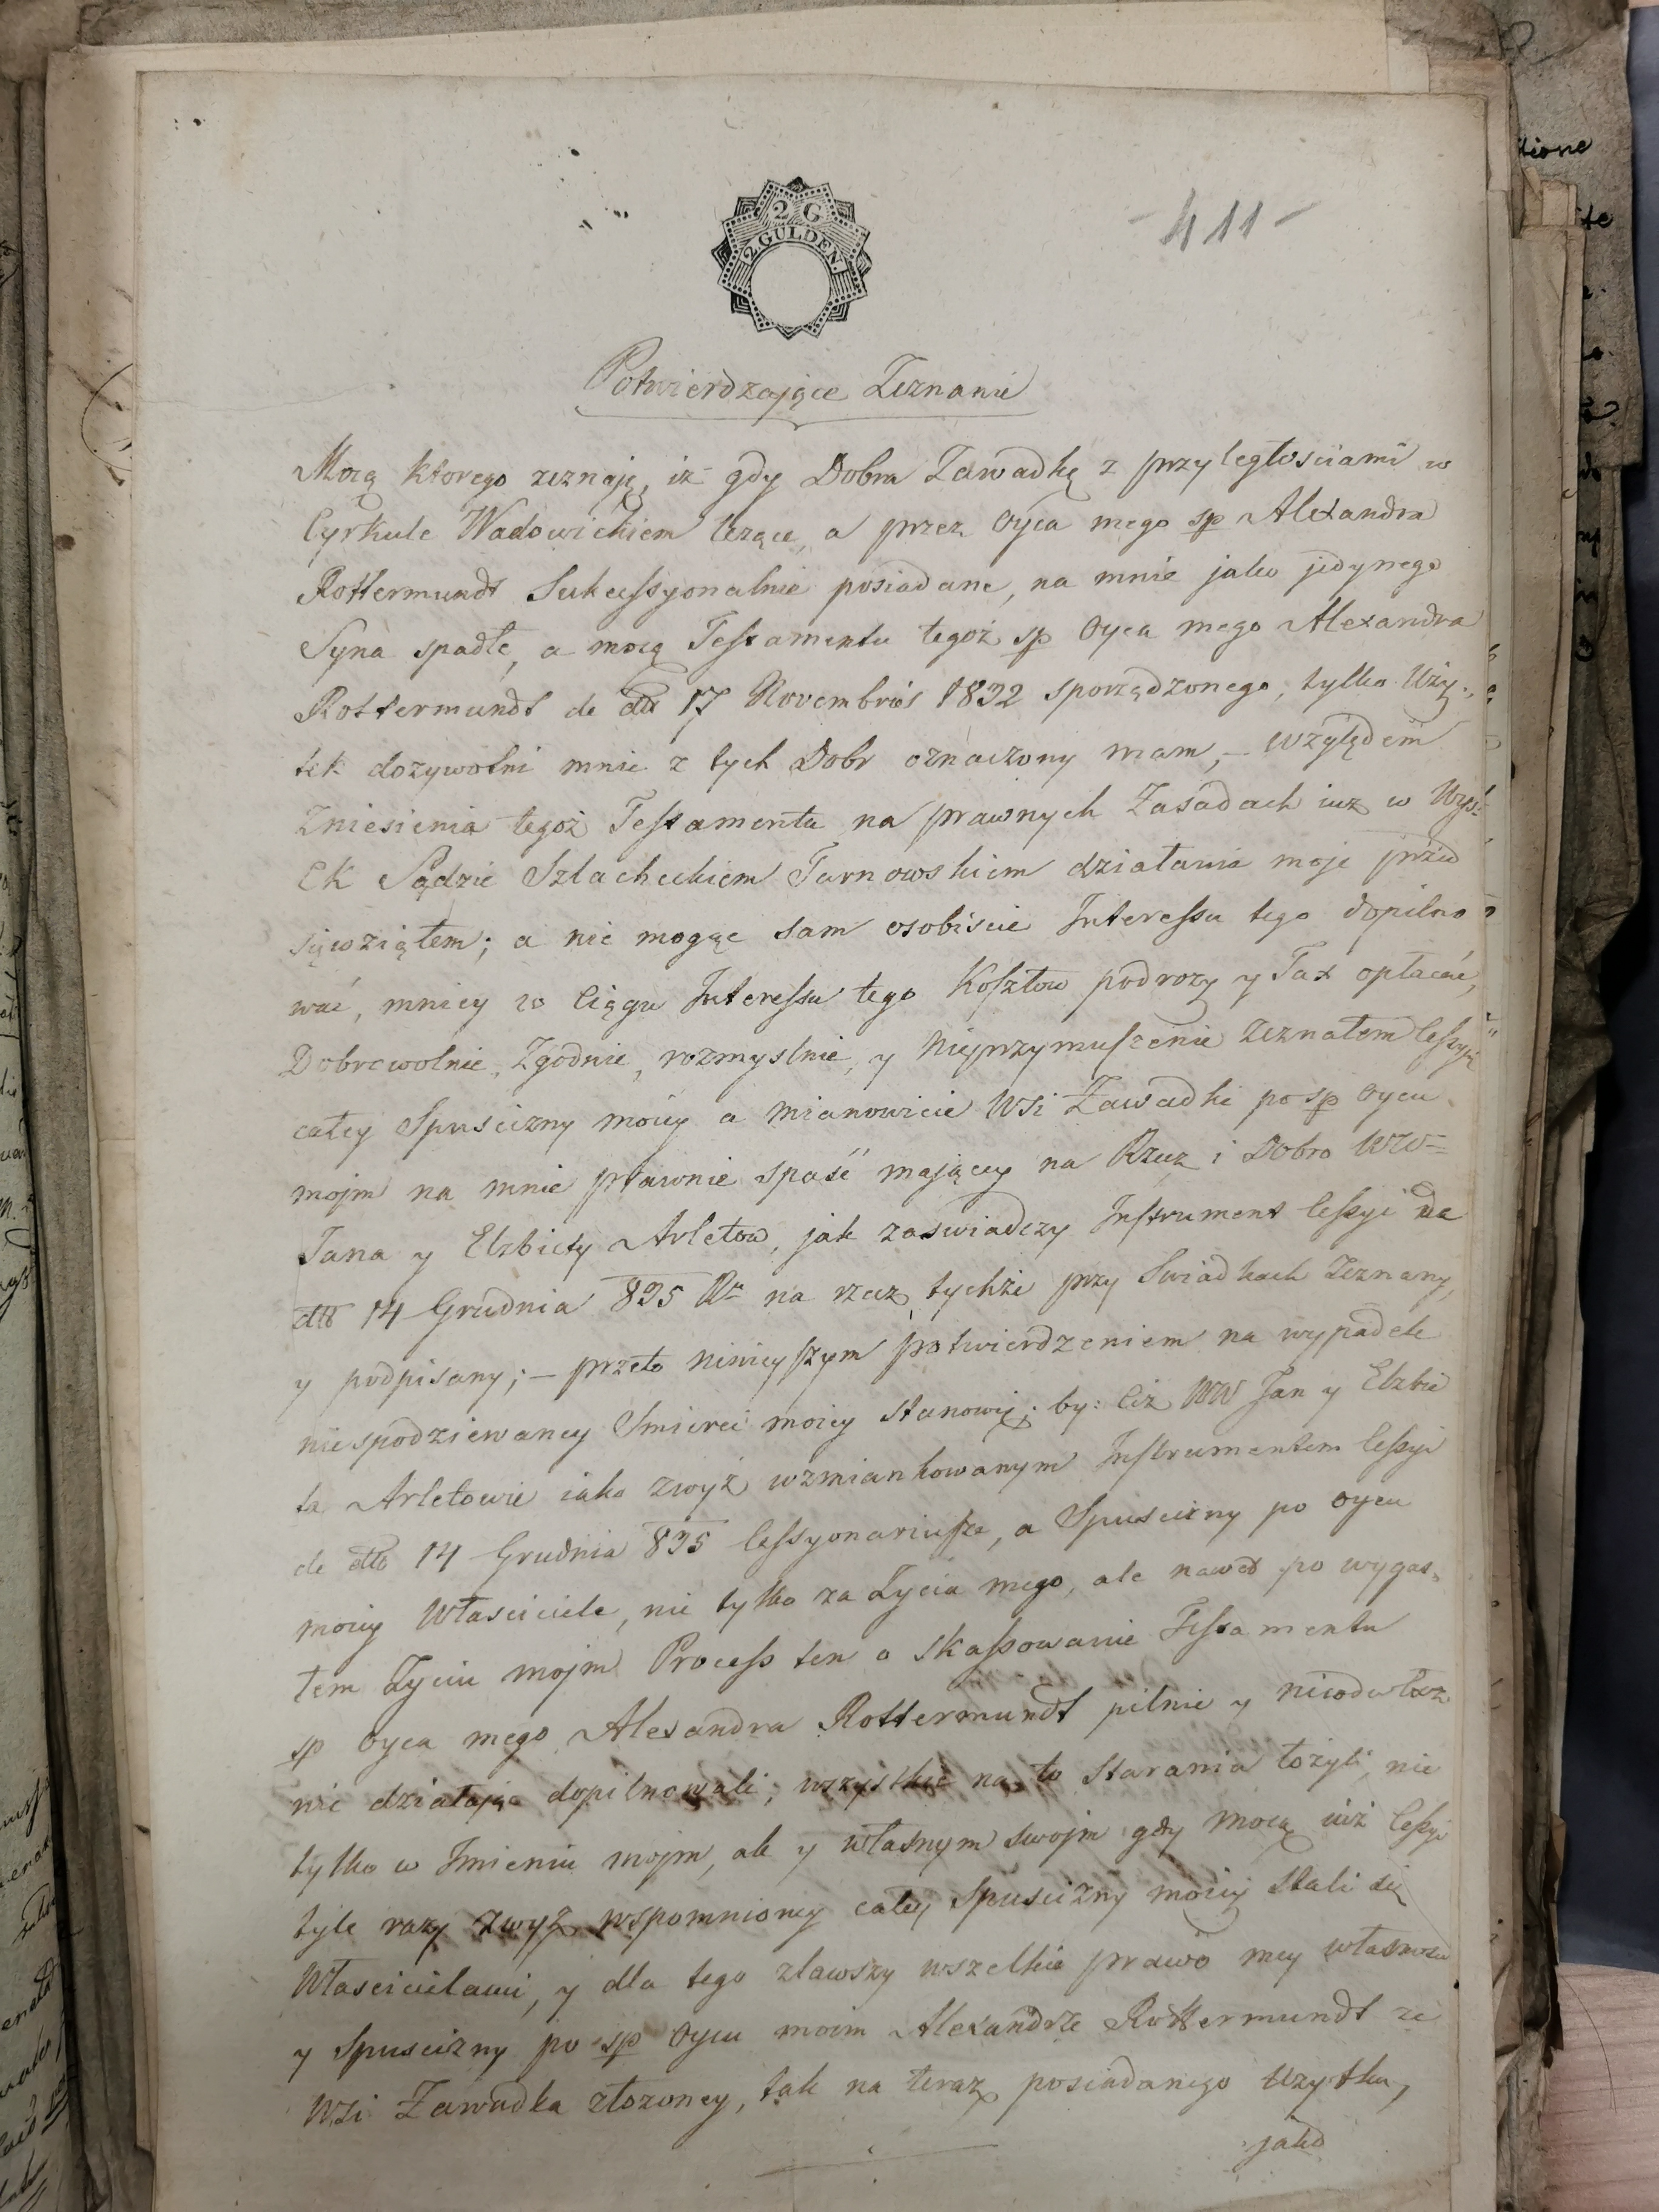 2 G
2 GULDEN.
- 411 -
Potwierdzające Zeznanie
Mocą ktorego zeznaję, iż gdy Dobra Zawadkę z przyległościami w
Cyrkule Wadowickiem leżące, a przez Oyca mego sp Alexandra
Rottermundt Sukcessyonalnie posiadane, na mnie jako jedynego
Syna spadłe, a mocą Testamentu tegoż sp Oyca mego Alexandra
Rottermundt de dto 17 Novembris 1832 sporządzonego, tylko Uży-
tek dozywotni mnie z tych Dobr oznaczony mam, – względem
Zniesienia tegoż Testamentu na prawnych Zasadach iuz w Wys:
CK Sądzie Szlacheckiem Tarnowskiem działania moje przed
sięwziąłem; a nie mogąc sam osobiscie Interessu tego dopilno
wać, mniey w Ciągu Interessu tego Kosztow podrozy y Tax opłacać,
Dobrowolnie, Zgodnie, rozmyslnie, y Nieprzymuszenie Zeznałem Cessyę
całey Spuscizny moiey a mianowicie Wsi Zawadki po sp Oycu
mojm na mnie prawnie spaść maiącey na Rzecz i Dobro WW=
Jana y Elzbiety Arletow, jak zaswiadczy Instrument Cessyi de
dto 14 Grudnia 835 Ru na rzecz tychże przy Swiadkach Zeznany,
y podpisany; – przeto ninieyszym potwierdzeniem na wypadek
niespodziewaney Smierci moiey stanowię; by: Ciż WW Jan y Elzbie
ta Arletowie iako zwyż wzmiankowanym Instrumentem Cessyi
de dto 14 Grudnia 835 Cessyonariusze, a Spuscizny po oycu
moiey Własciciele, nie tylko za Zycia mego, ale nawet po wygas-
łem Zyciu mojm Process ten o skassowanie Testamentu
sp Oyca mego Alexandra Rottermundt pilnie y nieodwłocz
nie działając dopilnowali; wszystkie na to starania łożyli, nie
tylko w Imieniu mojm, ale y własnym swojm gdy mocą iuż Cessyi
tyle razy zwyż wspomnioney całey Spuscizny moiey stali się
Włascicielami, y dla tego zlawszy wszelkie prawo mey własnosci
y Spuscizny po sp Oycu moim Alexandrze Rottermundt ze
Wsi Zawadka złozoney, tak na teraz posiadanego Uzytku,
jako